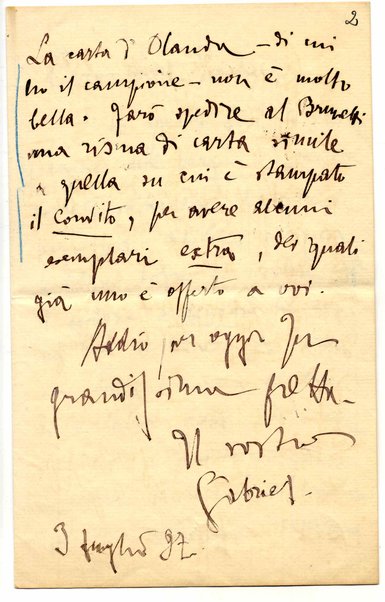 2
La carta d'Olanda – di cui
ho il campione – non è molto
bella. Farò spedire al
una risma di carta simile
a quella su cui è stampato
il Convito, per avere alcuni
esemplari extra, dei quali
già uno è offerto a voi.
Addio per oggi. In
grandissima fretta.
Il vostro
Gabriel.
3 luglio 97.